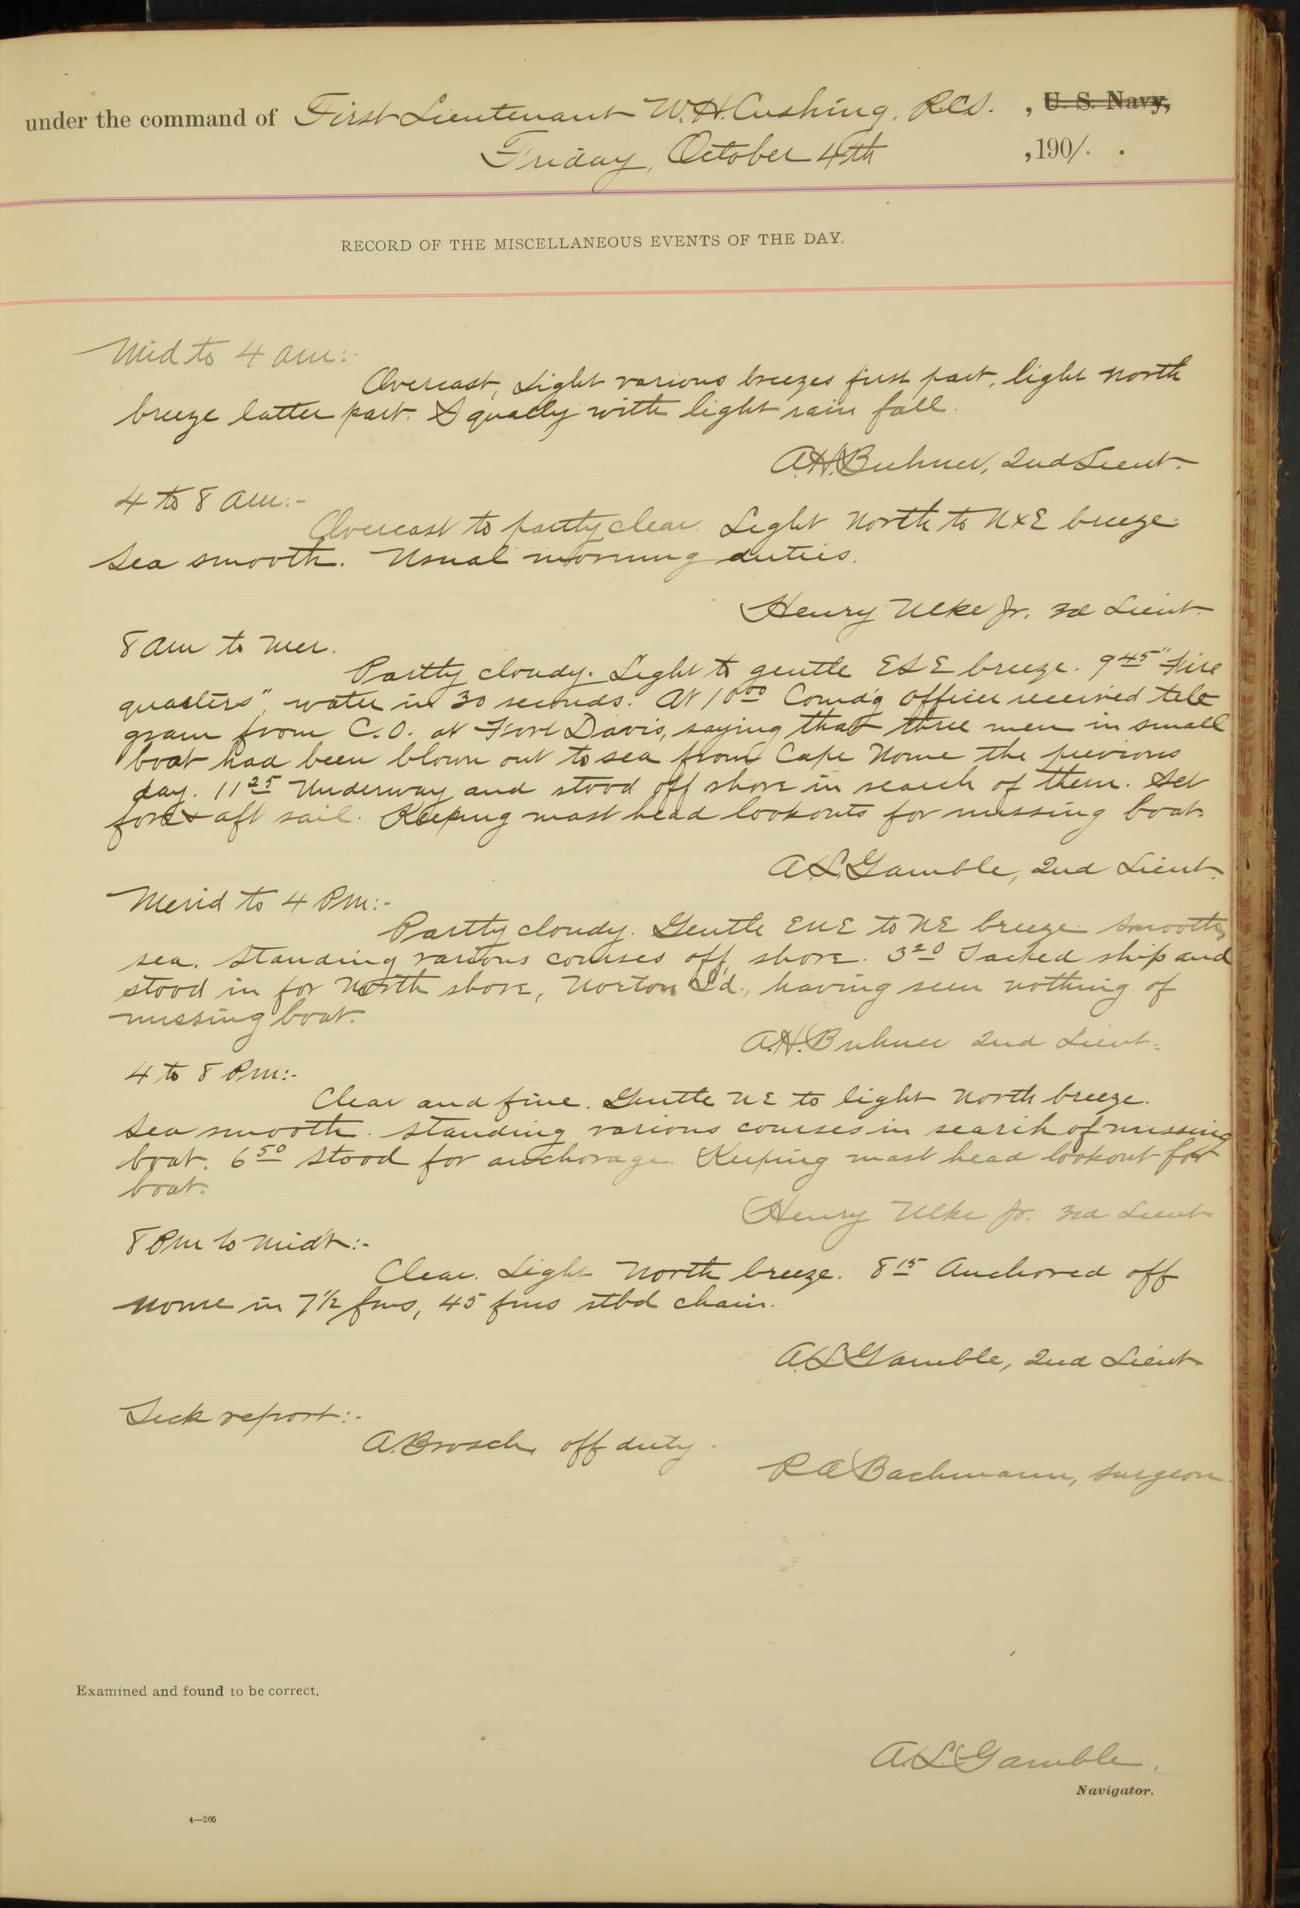 under the command of First Lieutenant W. H. Cushing, RCS. , U. S. Navy,
Friday, October 4th , 1901.
RECORD OF THE MISCELLANEOUS EVENTS OF THE DAY.
Mid to 4 am:-
Overcast, Light various breezes first part, light north
breeze latter part. Squally with light rain fall.
A.H. Buhner, 2nd Lieut.
4 to 8 am:-
Overcast to partly clear. Light North to NxE breeze.
Sea smooth. Usual morning duties.
Henry Ulke Jr. 3d Lieut.
8 am to mer.
Partly cloudy. Light to gentle ESE breeze. 9 45 "Fire
quarters", water in 30 seconds. At 10 00 Comd'g officer received tele
gram from C.O. at Fort Davis, saying that three men in small
boat had been blown out to sea from Cape Nome the previous
day. 11 25 Underway and stood off shore in search of them. Set
fore & aft sail. Keeping mast head lookouts for missing boat.
A.L. Gamble, 2nd Lieut.
Merid to 4 Pm:-
Partly cloudy. Gentle ENE to NE breeze smooth
sea. Standing various courses off shore. 3 20 Tacked ship and
stood in for North shore, Norton S'd., having seen nothing of
missing boat.
A.H. Buhner 2nd Lieut.
4 to 8 Pm:-
Clear and fine. Gentle NE to light North breeze.
Sea smooth. Standing various courses in search of missing
boat. 6 50 Stood for anchorage. Keeping mast head lookout for
boat.
Henry Ulke Jr. 3rd Lieut
8 Pm to Midt:-
Clear. Light North breeze. 8 15 Anchored off
Nome in 7 1/2 fms, 45 fms stbd chain.
A.L. Gamble, 2nd Lieut
Sick report:-
A. Brosch, off duty.
Bachmann, Surgeon
Examined and found to be correct.
A.L. Gamble.
Navigator.
4—205